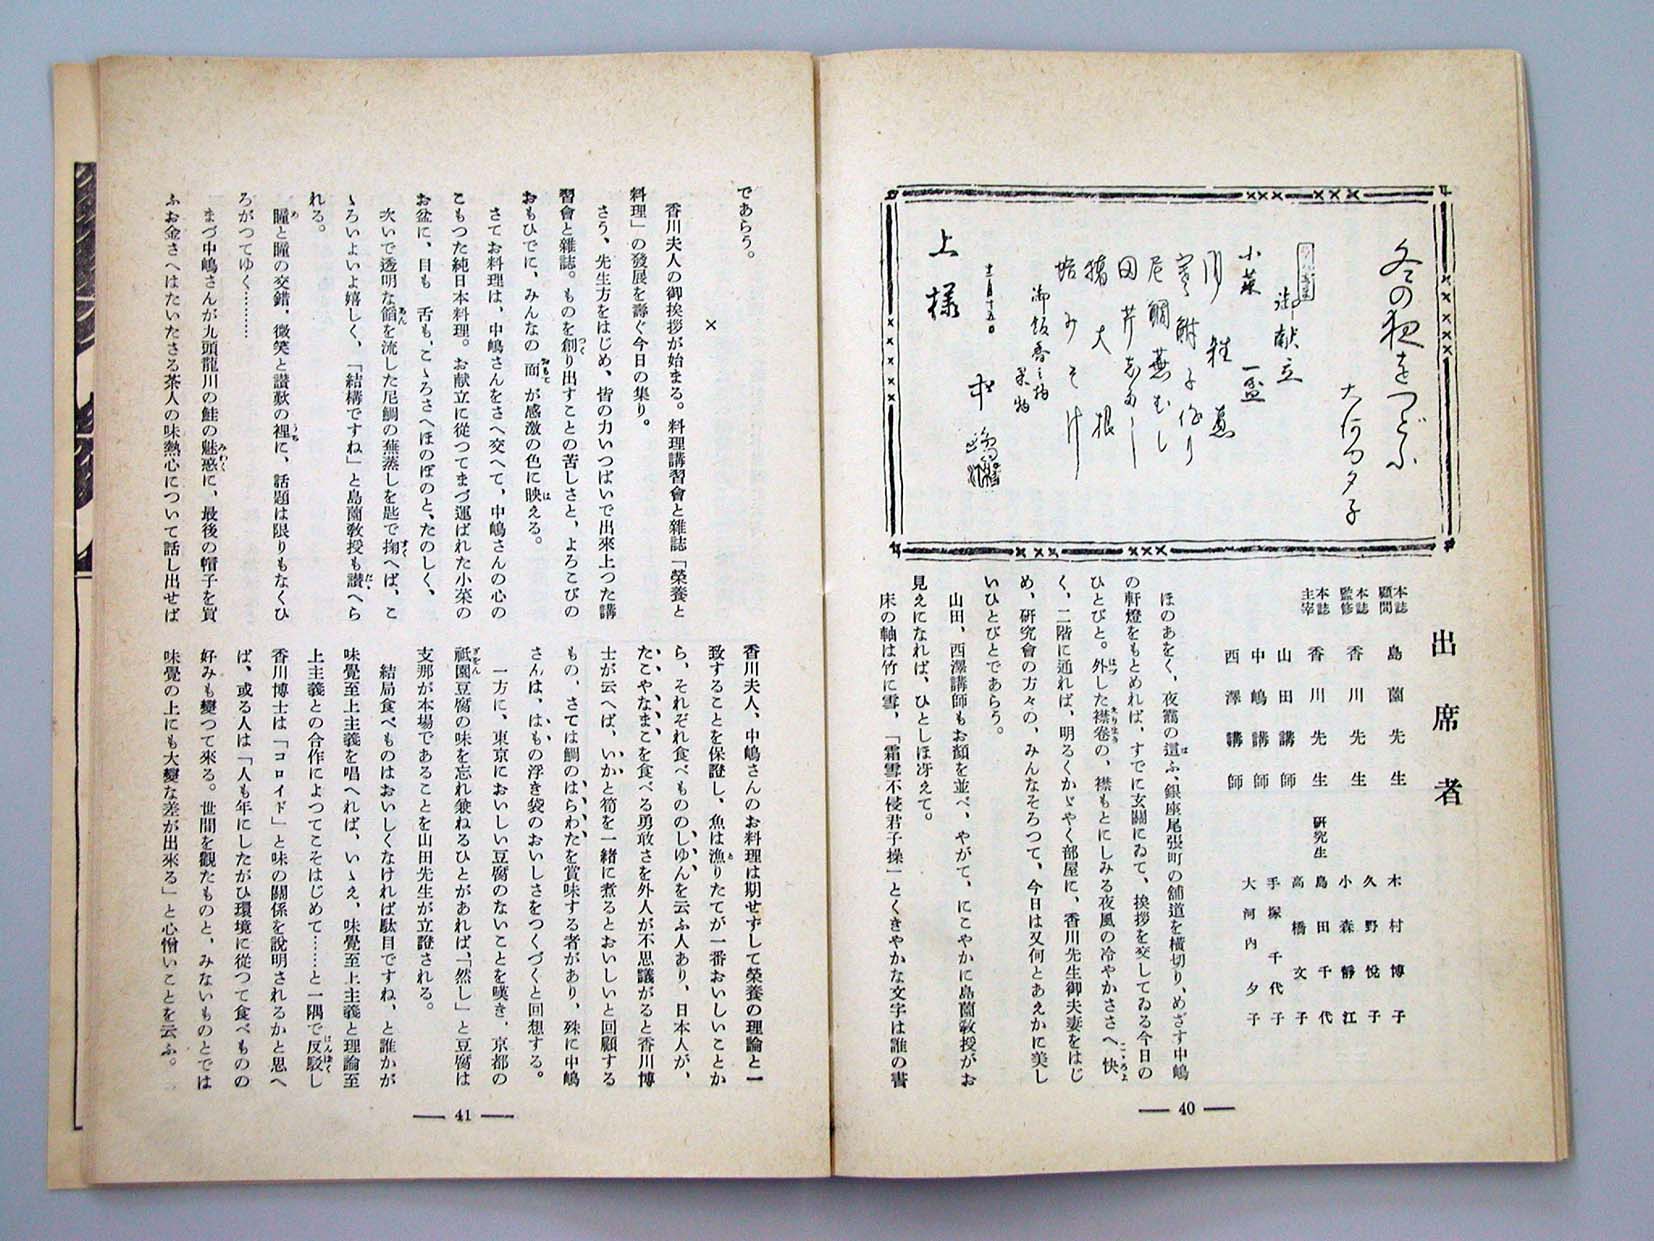 冬の夜をつどふ
大河内夕子
御献立
小菜 一盃
尼鯛蕪むし
田芹
猪大根
御飯香之物
果物
十二月十五日
上様
出席者
本誌顧問 島薗先生
本誌監修 香川先生
本誌主宰 香川先生
山田講師
中嶋講師
西澤講師
研究生
木村博子
久野悦子
小森靜江
島田千代
高橋文子
手塚千代子
大河内夕子
ほのあをく、夜靄の這ふ、銀座尾張町の舗道を横切り、めざす中嶋
の軒燈をもとめれば、すでに玄關にゐて、挨拶を交してゐる今日の
ひとびと。外した襟卷の、襟もとにしみる夜風の冷やかささへ快
く、二階に通れば、明るくかゞやく部屋に、香川先生御夫妻をはじ
め、研究會の方々の、みんなそろつて、今日は又何とあえかに美し
いひとびとであらう。
山田、西澤講師もお顏を並べ、やがて、にこやかに島薗敎授がお
見えになれば、ひとしほ冴えて。
床の軸は竹に雪、「霜雪不侵君子操」とくきやかな文字は誰の書
— 40 —
であらう。
×
香川夫人の御挨拶が始まる。料理講習會と雜誌「榮養と
料理」の發展を壽ぐ今日の集り。
さう、先生方をはじめ、皆の力いつぱいで出來上つた講
習會と雜誌。ものを創り出すことの苦しさと、よろこびの
おもひでに、みんなの面が感激の色に映える。
さてお料理は、中嶋さんをさへ交へて、中嶋さんの心の
こもつた純日本料理。お献立に從つてまづ運ばれた小菜の
お盆に、目も 舌も、こゝろさへほのぼのと、たのしく、
次いで透明な餡を流した尼鯛の蕪蒸しを匙で掬へば、こ
ゝろいよいよ嬉しく、「結構ですね」と島薗敎授も讃へら
れる。
瞳と瞳の交錯、微笑と讃歎の裡に、話題は限りもなくひ
ろがつてゆく…………
まづ中嶋さんが九頭龍川の鮭の魅惑に、最後の帽子を買
ふお金さへはたいたさる茶人の味熱心について話し出せば
香川夫人、中嶋さんのお料理は期せずして榮養の理論と一
致することを保證し、魚は漁りたてが一番おいしいことか
ら、それぞれ食べもののしゆんを云ふ人あり、日本人が、
たこやなまこを食べる勇敢さを外人が不思議がると香川博
士が云へば、いかと筍を一緒に煮るとおいしいと回顧する
もの、さては鯛のはらわたを賞味する者があり、殊に中嶋
さんは、はもの浮き袋のおいしさをつくづくと回想する。
一方に、東京においしい豆腐のないことを嘆き、京都の
祇園豆腐の味を忘れ兼ねるひとがあれば、「然し」と豆腐は
支那が本場であることを山田先生が立證される。
結局食べものはおいしくなければ駄目ですね、と誰かが
味覺至上主義を唱へれば、いゝえ、味覺至上主義と理論至
上主義との合作によつてこそはじめて……と一隅で反駁し
香川博士は「コロイド」と味の關係を說明されるかと思へ
ば、或る人は「人も年にしたがひ環境に從つて食べものの
好みも變つて來る。世間を觀たものと、みないものとでは
味覺の上にも大變な差が出來る」と心憎いことを云ふ。
— 41 —